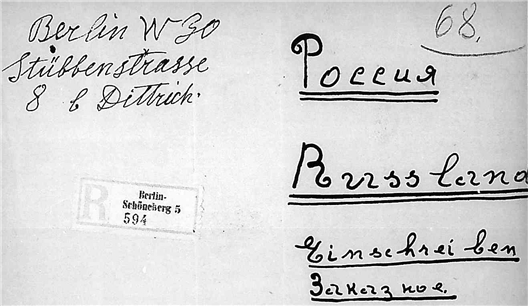 Berlin W 30
Stübbenstrasse
8 b Dittrich.
68.
Россия
Russland
R
Berlin-
Schöneberg 5
594
Einschreiben
Заказное.